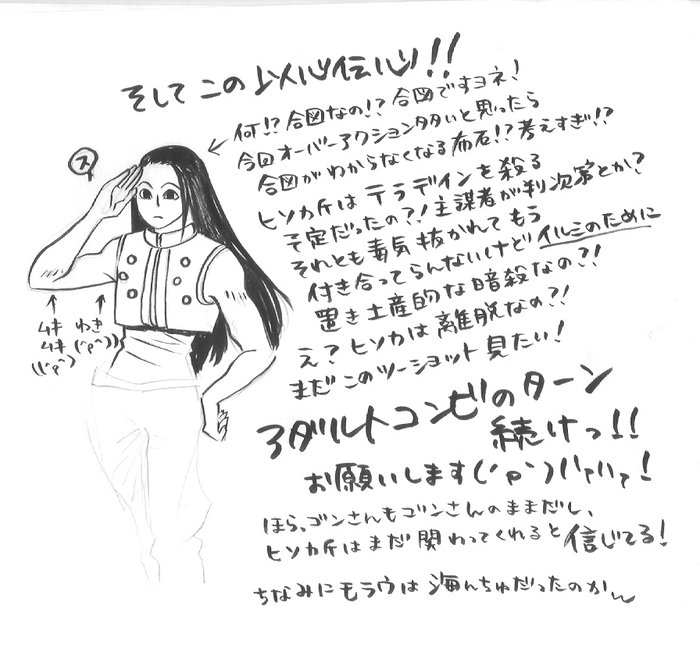 そしてこの以心伝心!!
何!?合図なの!?合図ですヨネ!
今回オーバーアクションタタいと思ったら
合図がわからなくなる布石!?考えすぎ!?
ヒソカ斤はテラデインを殺る
予定だったの?!主謀者が判次第とか?
それとも毒気抜かれてもう
付き合ってらんないけどイルミのために
置き土産的な暗殺なの?!
え?ヒソカは離脱なの?!
まだこのツーショット見たい!
アダルトコンビのターン
続けっ!!
お願いします(´p`)ハァハァ!
ほら、ゴンさんもゴンさんのままだし、
ヒソカ斤はまだ関わってくれると信じてる!
ちなみにモラウは海んちゅだったのか〜
ス
ムキ
ムキ
(´p`)
わき
(´p`))